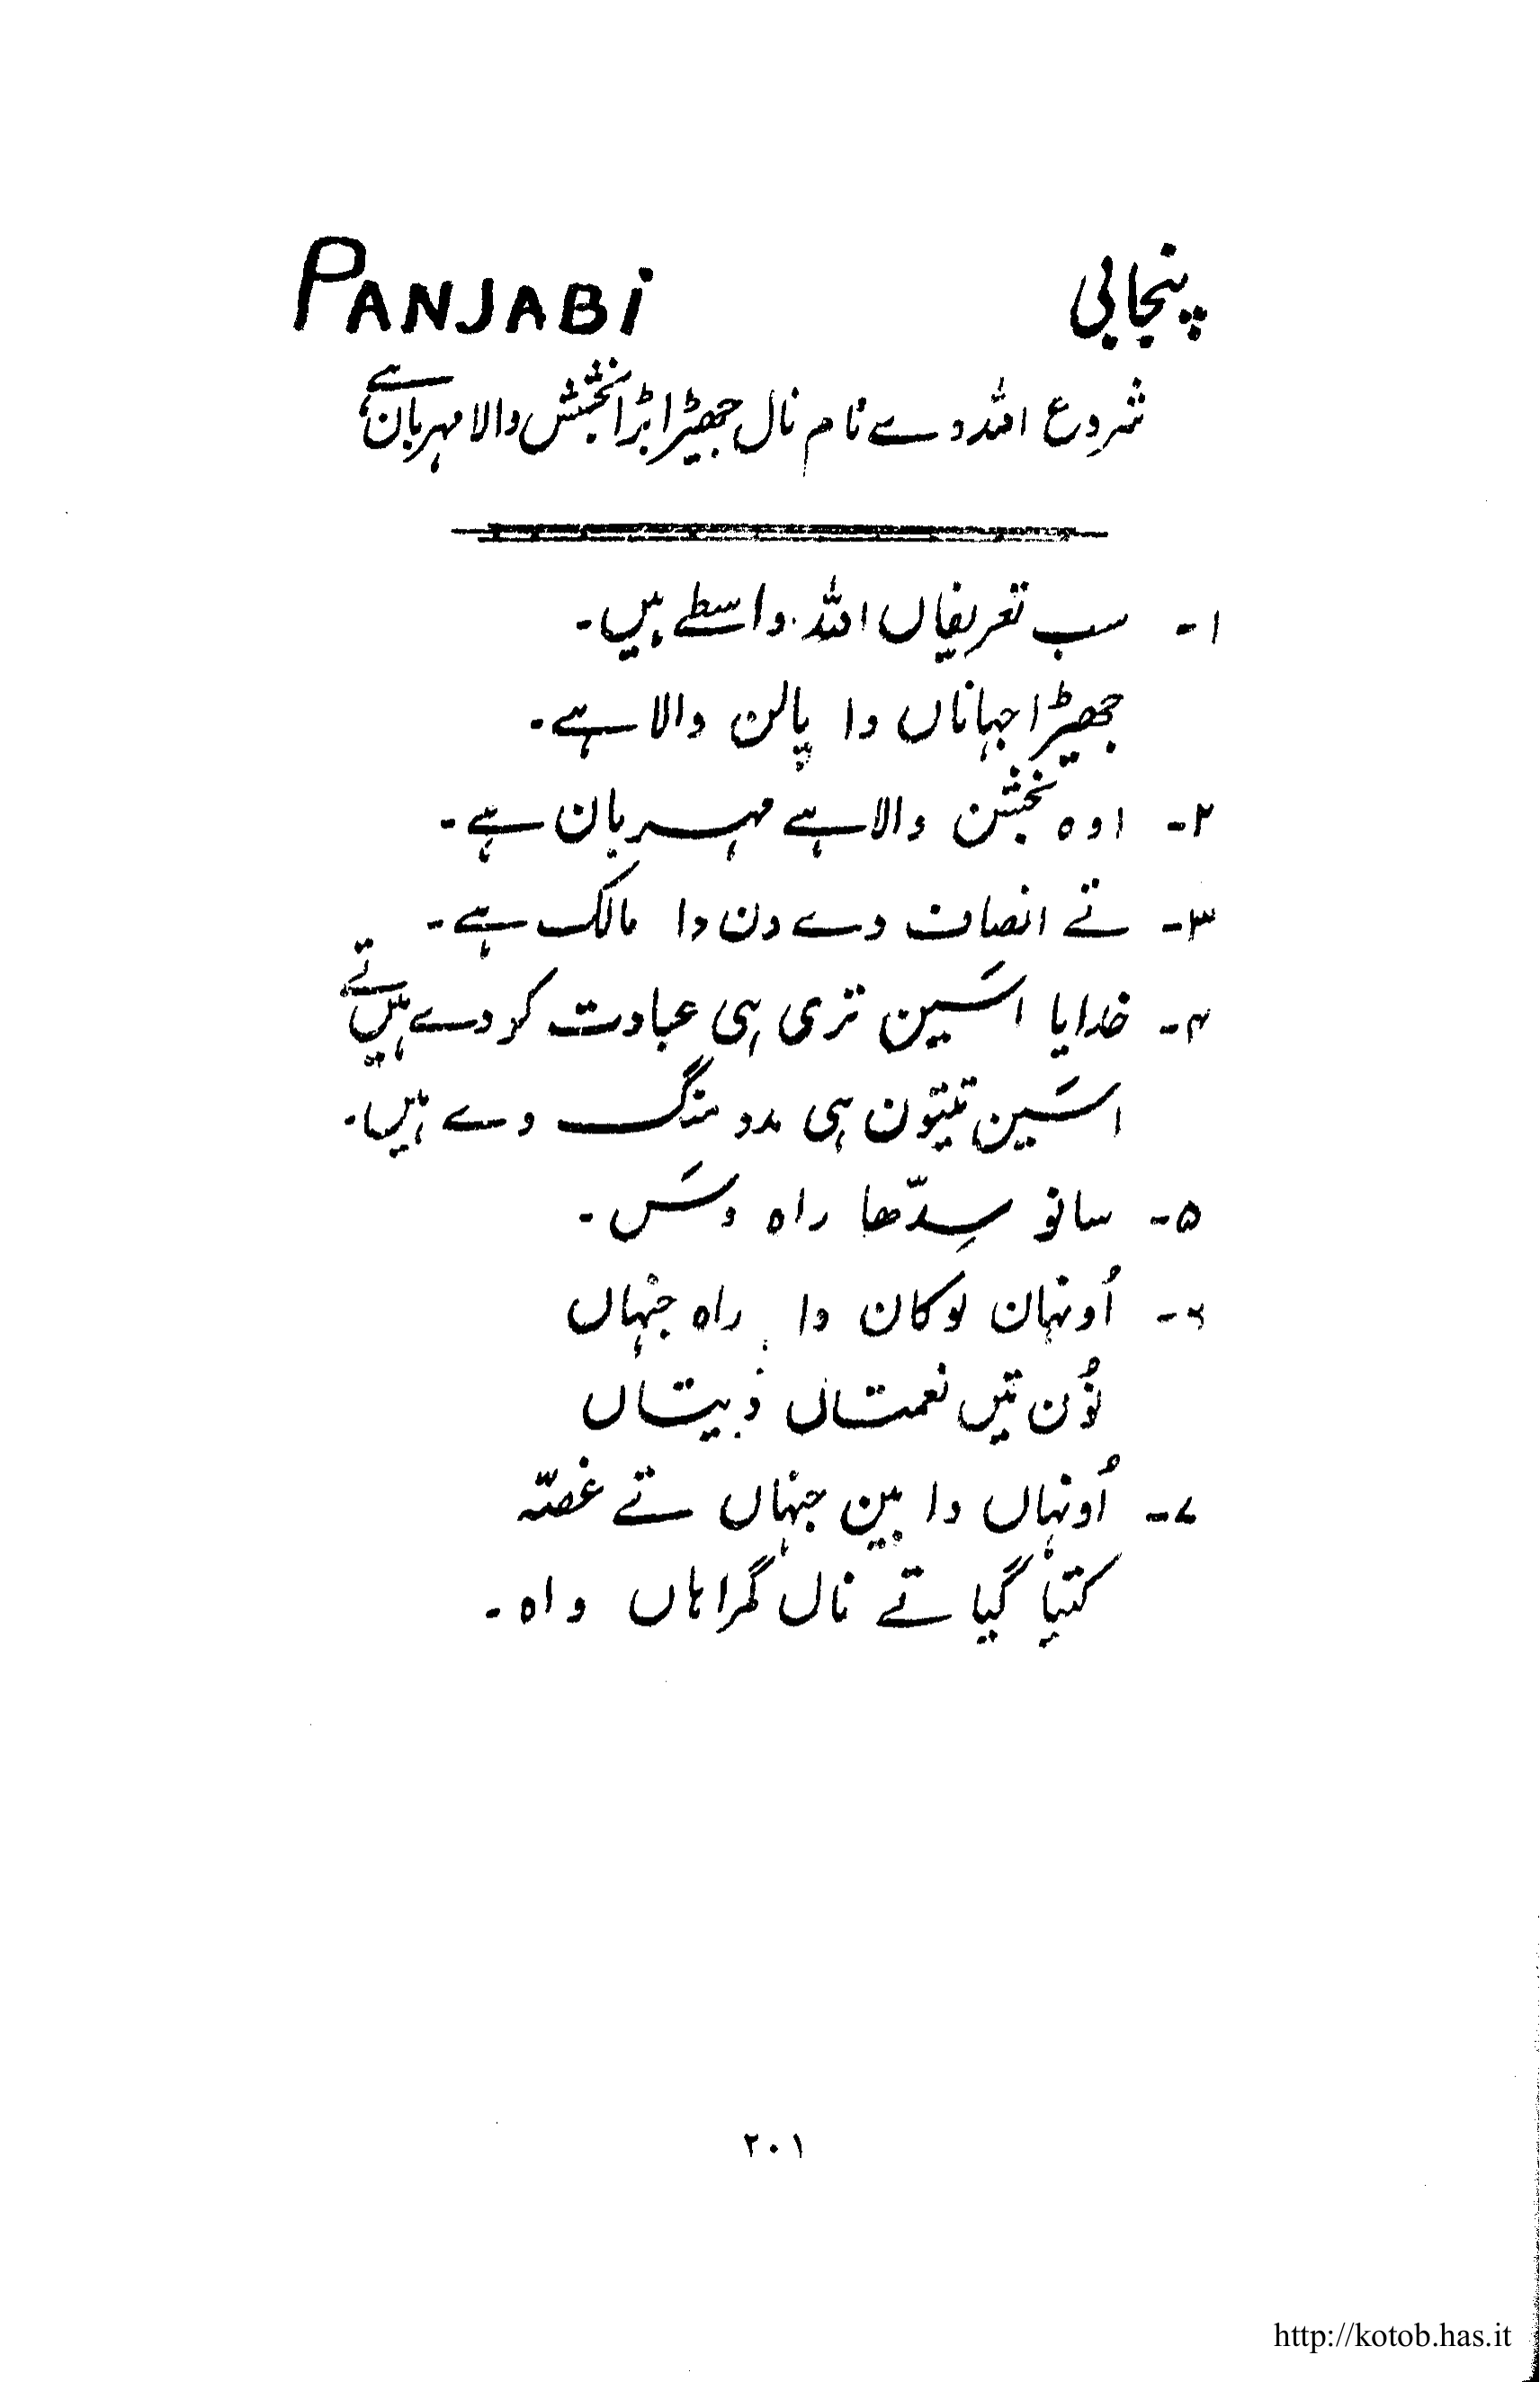 PANJABi پنجابی
شروع اللہ دے نام نال جھیڑا بڑا بخشش والا مہربان ہے
۱- سب تعریفاں اللہ واسطے ہیں۔
جھیڑا جہاناں دا پالن والا ہے۔
۲- اوہ بخشن والا ہے مہربان ہے۔
۳- تے انصاف دے دن دا مالک ہے۔
۴- خدایا اسَین تری ہی عبادت کردے ہیں تے
اسَین تیتون ہی مدد منگ دے ہیں۔
۵- سانو سِدّھا راہ دسَ۔
۶- اُونہان لوکان دا راہ جنہاں
نُون تیں نعمتاں دیتاں
۷- اُونہاں دا بین جنہاں تے غصّہ
کتیا گیا تے نال گمراہاں واہ۔
۲۰۱
http://kotob.has.it